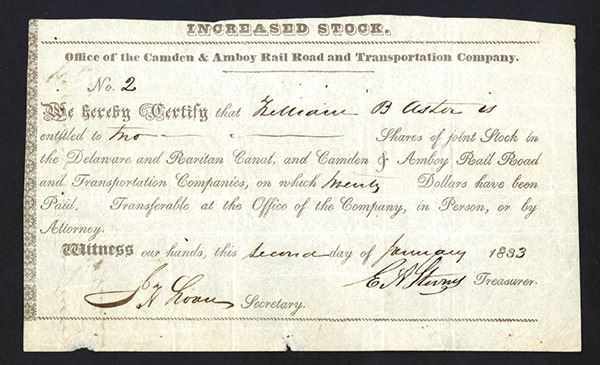 INCREASED STOCK.
Office of the Camden & Amboy Rail Road and Transportation Company.
No. 2
We hereby Certify that William B Astor is
entitled to two Shares of joint Stock in
the Delaware and Raritan Canal, and Camden & Amboy Rail Road
and Transportation Companies, on which twenty Dollars have been
Paid. Transferable at the Office of the Company, in Person, or by
Attorney.
Witness our hands, this second day of January 1833
Secretary. E A Stevens Treasurer.